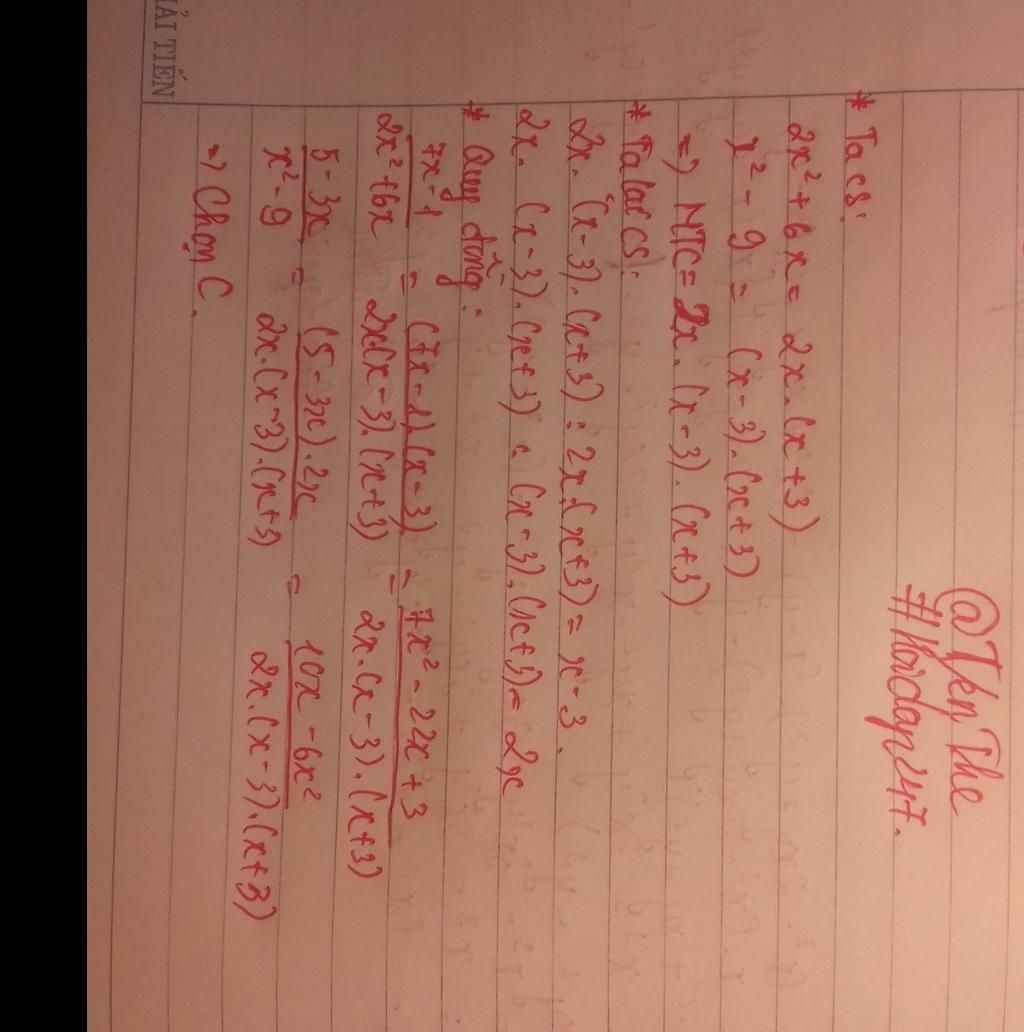 @Tien The
#Hoidap247.
* Ta có:
2x² + 6x = 2x.(x+3)
x² - 9 = (x-3).(x+3)
=> MTC = 2x.(x-3).(x+3)
* Ta lại có:
2x.(x-3).(x+3) : 2x.(x+3) = x-3.
2x.(x-3).(x+3) : (x-3).(x+3) = 2x
* Quy đồng:
7x-1/2x²+6x = (7x-1).(x-3)/2x.(x-3).(x+3) = 7x²-22x+3/2x.(x-3).(x+3)
5-3x/x²-9 = (5-3x).2x/2x.(x-3).(x+3) = 10x-6x²/2x.(x-3).(x+3)
=> Chọn C.
ẢI TIẾN